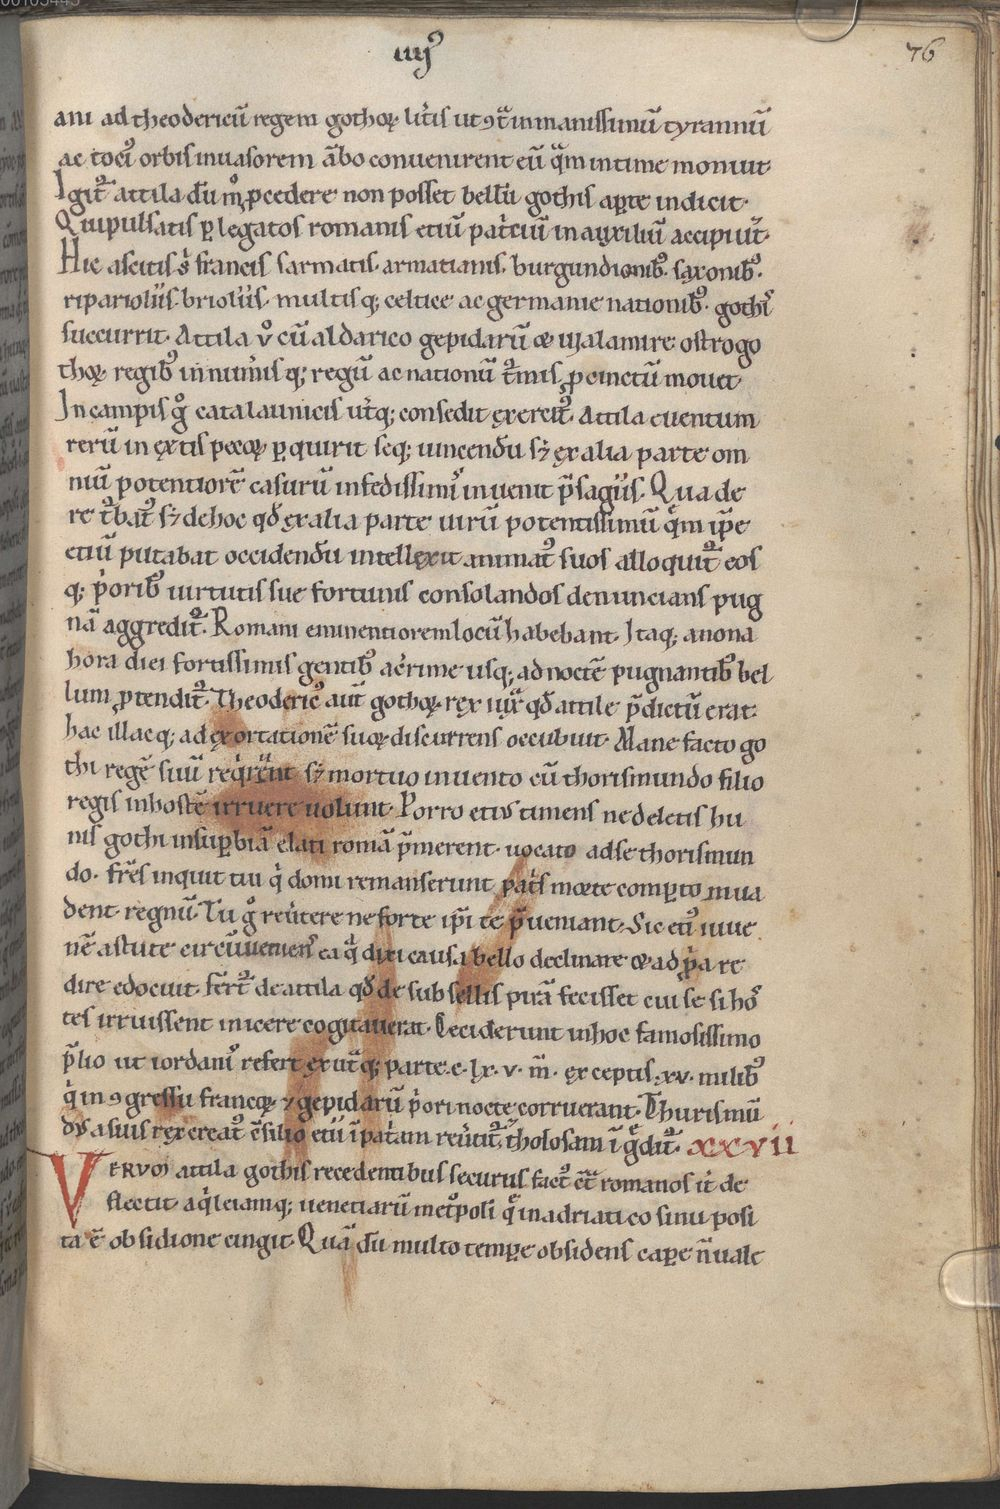 iiij⁹
76
ani ad theodericū regem gothoꝝ lit̄is ut ꝯt̄ inmanissimū tyrannū
ac toci⁹ orbis inuasorem ābo conuenirent eū q̄m intime monuit·
Igit̄ attila dū m̊ ꝓcedere non posset bellū gothis aꝑte indicit·
Qui pulsatis ꝑ legatos romanis etiū pat̄ciū in auxiliū accipiūt·
Hic ascitis s̄ francis sarmatis· armatianis· burgundionib⁹· saxonib⁹·
ripariolijs· briolijs· multisq; celtice ac germanie nationib⁹· gothis
succurrit· Attila v̊ cū aldarico gepidarū ⁊ walamire ostrogo
thoꝝ regib⁹ innum̄isq; regū ac nationū t̄mis ꝓcinctū mouet·
In campis g̊ catalaunicis ut̄q; consedit exercit⁹· Attila euentum
rerū in extis pecoꝝ ꝑquirit seq; uincendū sꝫ ex alia parte om
niū potentiorē casurū infedissimi⁹ inuenit p̄sagijs· Qua de
re t̄bat⁹ sꝫ de hoc qđ ex alia parte uirū potentissimū q̄m ip̄e
etiū putabat occidendū intellexit animat⁹ suos alloquit̄ eos
q; p̄orib⁹ uirtutis sue fortunis consolandos denuncians pug
nā aggredit̄· Romani eminentiorem locū habebant· Itaq; a nona
hora diei fortissimis gentib⁹ ac̄rime usq; ad noctē pugnantib⁹ bel
lum ꝓtendit̄· Theoderic⁹ aut̄ gothoꝝ rex iux̄ qđ attile p̄dictū erat·
hac illacq; ad exortationē suoꝝ discurrens occubuit· Mane facto go
thi regē suū req̄rūnt sꝫ mortuo inuento cū thorismundo filio
regis in hostē irruere uolunt· Porro etiꝰ timens ne deletis hu
nis gothi in suꝑbiā elati romā p̄merent· uocato ad se thorismun
do· fr̄es inquit tui q̄ domi remanserunt pat̄s morte comꝑto inua
dent regnū· Tu g̊ reūtere ne forte ip̄i te p̄ueniant· Sic eti⁹ iuue
nē astute circūueniens ea q̄ dixi causa bello declinare ⁊ ad p̄pa re
dire edocuit· fert̄ de attila qđ de subsellis pirā fecisset cui se si hos
tes irruissent inicere cogitauerat· Ceciderunt in hoc famosissimo
p̄lio ut iordani⁹ refert ex ut̄q; parte· c· lx· v· m̄· exceptis· xv· milib⁹
q̄ in ꝯgressu francoꝝ ⁊ gepidarū p̄ori nocte corruerant· Thurismū
dus a suis rex creat⁹ ꝯsilio etii ī pat̄am reūtit̄· tholosam īg̊dit̄· xxvii
VERVM attila gothis recedentibus securus fact⁹ ꝯt̄ romanos it̄ de
flectit· aq̄leiamq; uenetiarū met̄poli q̄ in adriatico sinu posi
ta ē obsidione cingit· Quā dū multo temꝑe obsidens caꝑe n̄ uale